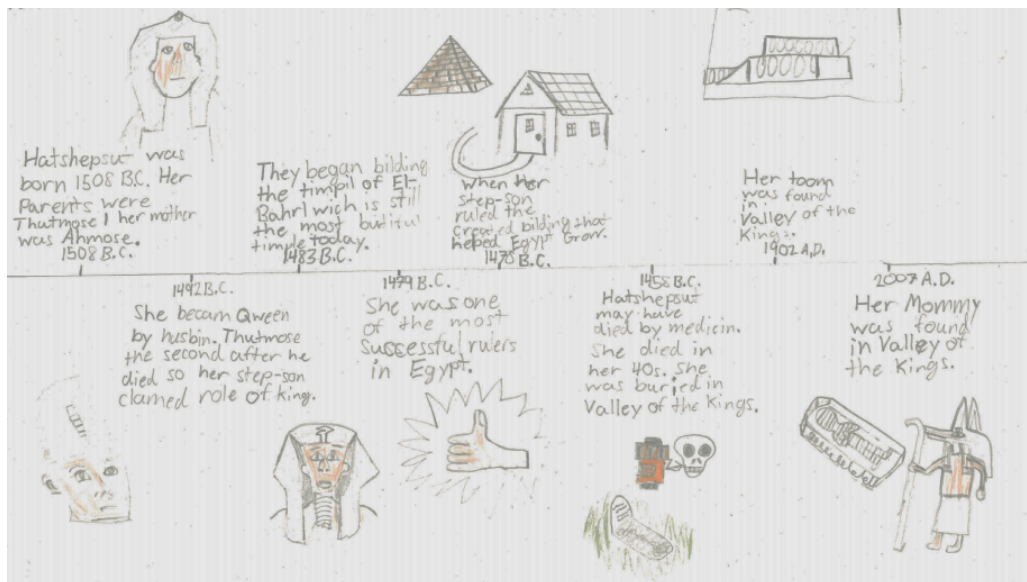 Hatshepsut was
born 1508 B.C. Her
Parents were
Thutmose 1 her mother
was Ahmose.
1508 B.C.
They began bilding
the timpil of El-
Bahri wich is still
the most butiful
timple today.
1483 B.C.
when Her
step-son
ruled the
created bilding that
heped Egypt Grow.
1475 B.C.
Her toom
was found
in
Valley of the
Kings.
1902 A.D.
1492 B.C.
She becam Qween
by husbin. Thutmose
the second after he
died so her step-son
clamed role of king.
1479 B.C.
She was one
of the most
successful rulers
in Egypt.
1458 B.C.
Hatshepsut
may have
died by medicin.
She died in
her 40s. She
was buried in
Valley of the Kings.
2007 A.D.
Her Mommy
was found
in Valley of
the Kings.